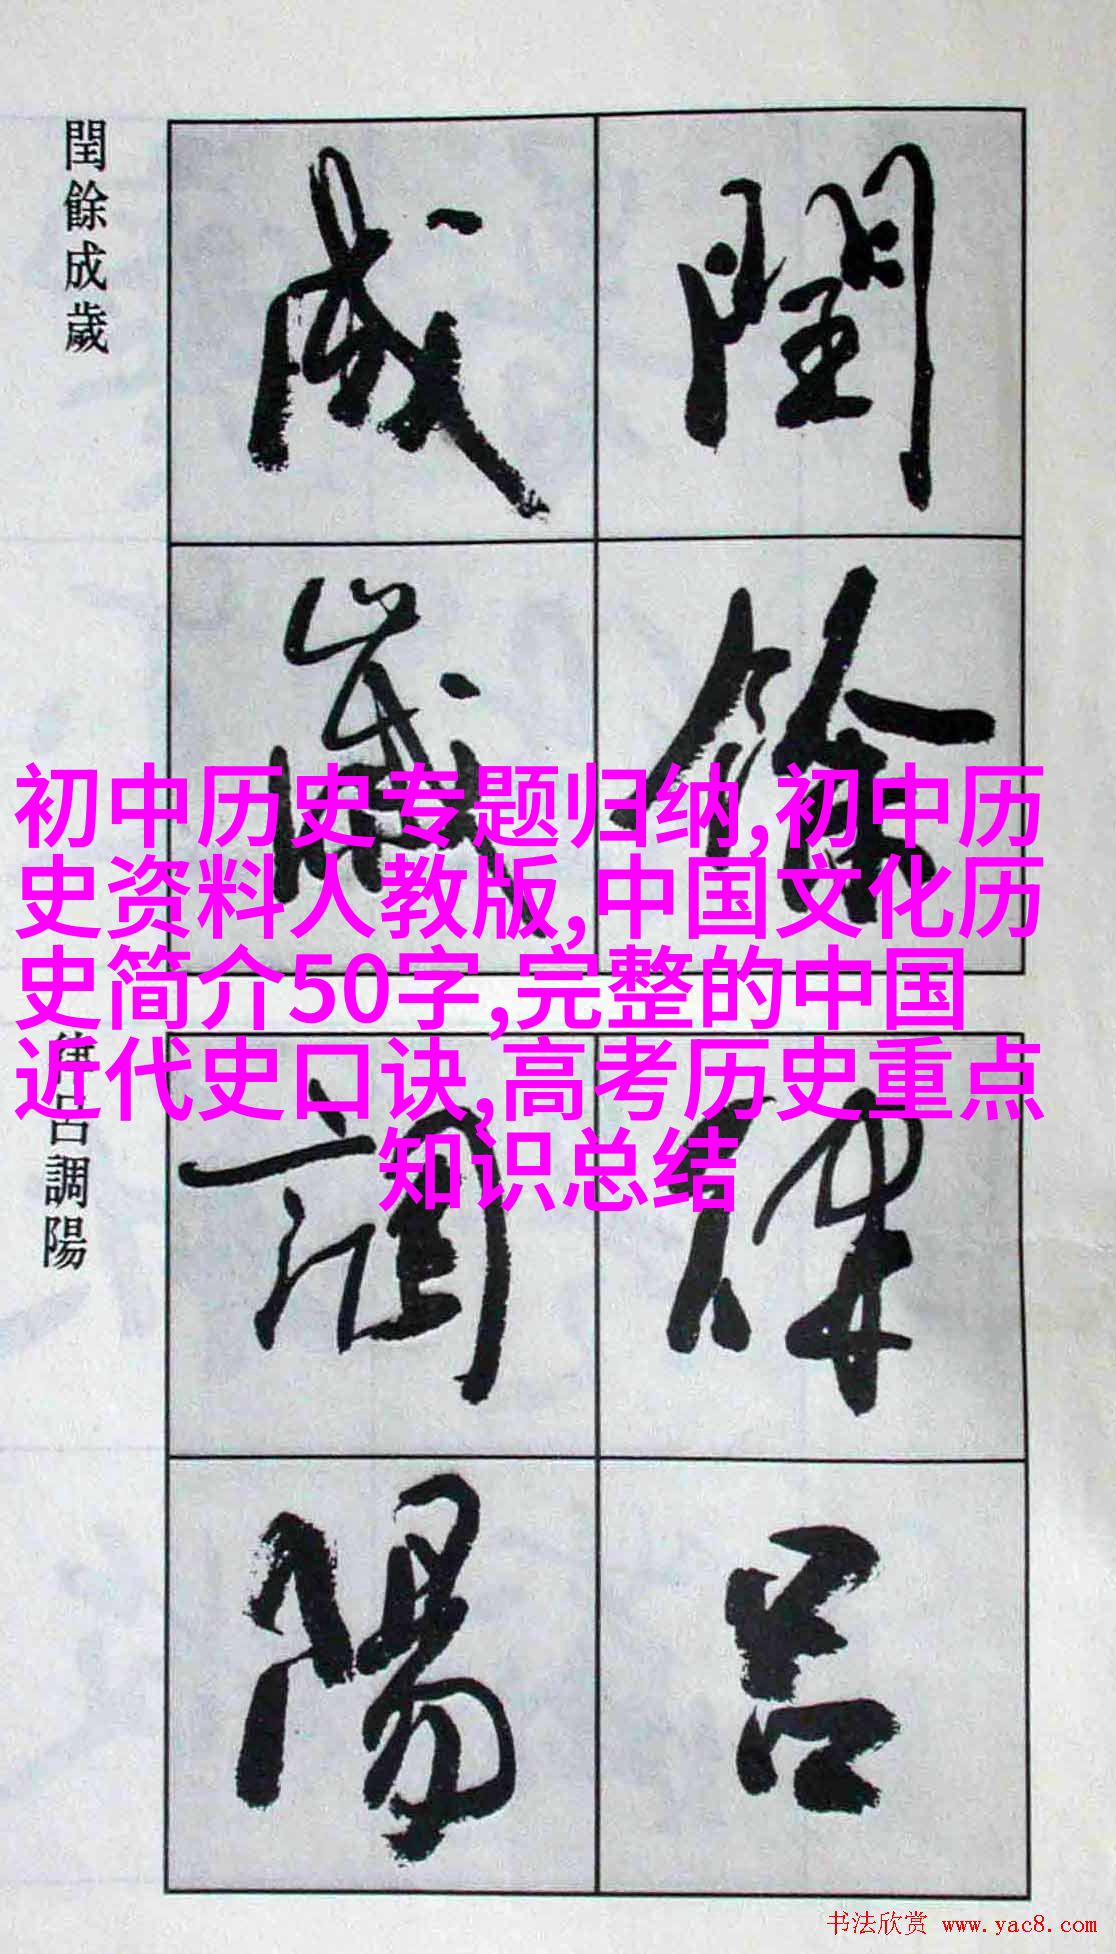 閏餘成歲
閏餘
成歲
初中历史专题归纳,初中历
史资料人教版,中国文化历
史简介50字,完整的中国
近代史口诀,高考历史重点
知识总结
律呂調陽
律呂
調陽
书法欣赏 www.yac8.com